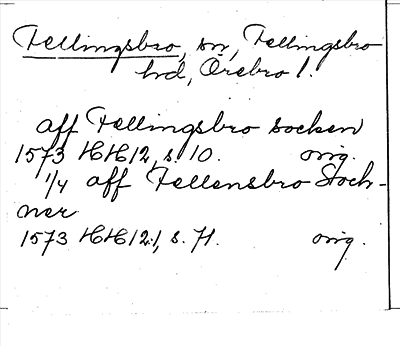 Fellingsbro, sn, Fellingsbro
hd, Örebro l.
aff Fellingsbro socken
1573 HH12, s. 10. orig.
1/4 aff Fellensbro Soch-
ner
1573 HH12:1, s. 71. orig.